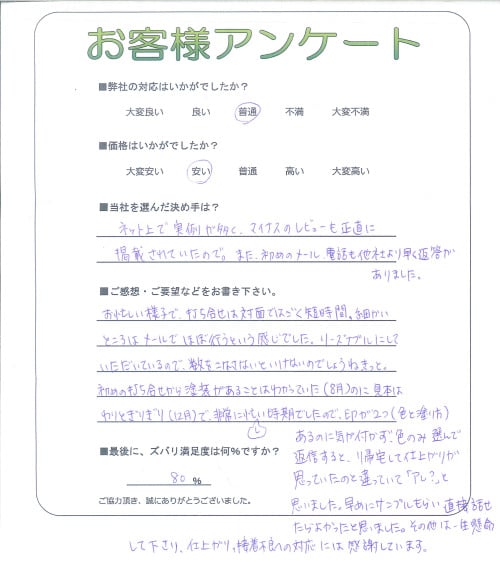 お客様アンケート
■弊社の対応はいかがでしたか？
大変良い 良い 普通 不満 大変不満
■価格はいかがでしたか？
大変安い 安い 普通 高い 大変高い
■当社を選んだ決め手は？
ネット上で実例が多く、マイナスのレビューも正直に
掲載されていたので。また、初めのメール、電話も他社より早く返答が
ありました。
■ご感想・ご要望などをお書き下さい。
お忙しい様子で、打ち合せは対面ではごく短時間、細かい
ところはメールでほぼ行うという感じでした。リーズナブルにして
いただいているので、数をこなさないといけないのでしょうねきっと。
初めの打ち合せから塗装があることはわかっていた(8月)のに見本は
わりとぎりぎり(12月)で、非常に忙しい時期でしたので、EPが2つ(色と塗り方)
あるのに気が付かず、色のみ選んで
返信すると、リ帰宅して仕上がりが
思っていたのと違っていて「アレ？」と
思いました。早めにサンプルもらい直接話せ
たらよかったと思いました。その他は一生懸命
して下さり、仕上がり、接着不良への対応には感謝しています。
■最後に、ズバリ満足度は何％ですか？
80 ％
ご協力頂き、誠にありがとうございました。